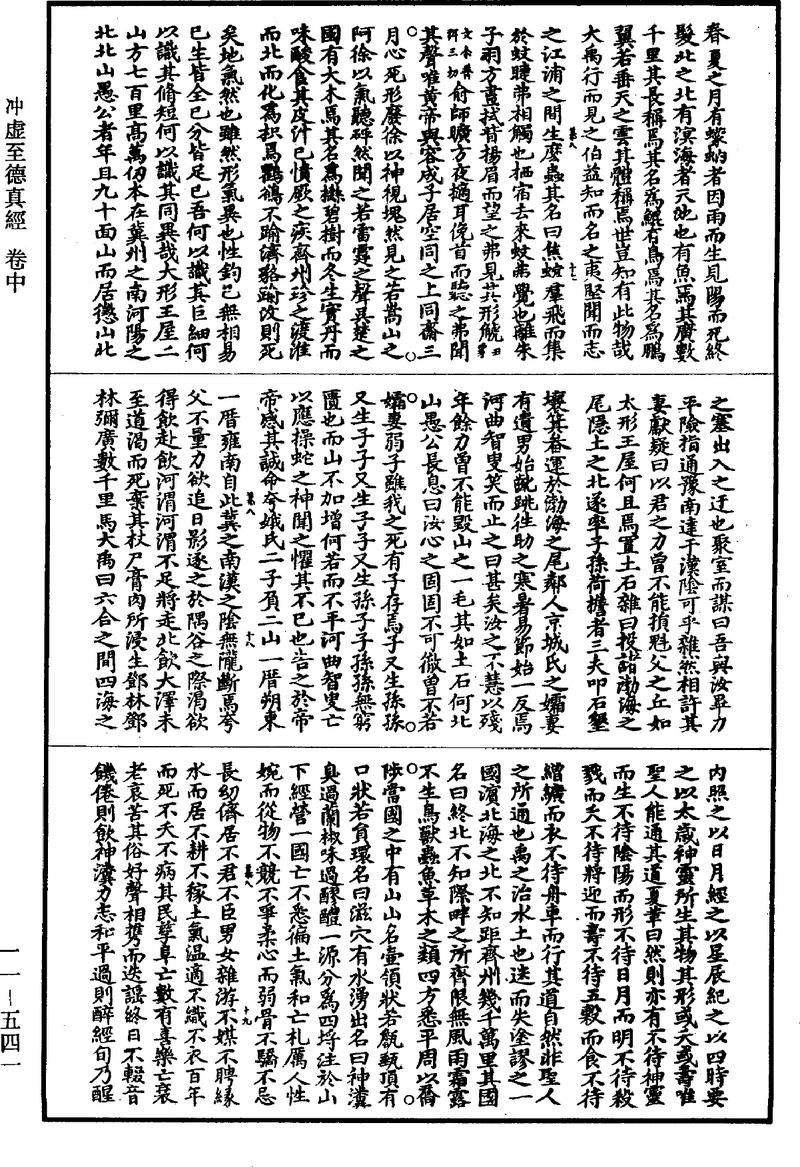 春夏之月有蠓蚋者因雨而生見陽而死終
髮北之北有溟海者天池也有魚焉其廣數
千里其長稱焉其名為鯤有鳥焉其名為鵬
翼若垂天之雲其體稱焉世豈知有此物哉
大禹行而見之伯益知而名之夷堅聞而志
之江浦之間生麼蟲其名曰焦螟羣飛而集
於蚊睫弗相觸也栖宿去來蚊弗覺也離朱
子羽方晝拭眥揚眉而望之弗見其形䚦
俞師曠方夜擿耳俛首而聽之弗聞
其聲唯黃帝與容成子居空同之上同齋三
月心死形廢徐以神視塊然見之若嵩山之
阿徐以氣聽砰然聞之若雷霆之聲吳楚之
國有大木焉其名為櫾碧樹而冬生實丹而
味酸食其皮汁已憤厥之疾齊州珍之渡淮
而北而化為枳焉鸜鵒不踰濟貉踰汶則死
矣地氣然也雖然形氣異也性鈞已無相易
已生皆全已分皆足已吾何以識其巨細何
以識其脩短何以識其同異哉大形王屋二
山方七百里高萬仞本在冀州之南河陽之
北北山愚公者年且九十面山而居懲山北
之塞出入之迂也聚室而謀曰吾與汝畢力
平險指通豫南達于漢陰可乎雜然相許其
妻獻疑曰以君之力曾不能損魁父之丘如
太形王屋何且焉置土石雜曰投諸渤海之
尾隱土之北遂率子孫荷擔者三夫叩石墾
壤箕畚運於渤海之尾鄰人京城氏之孀妻
有遺男始齔跳往助之寒暑易節始一反焉
河曲智叟笑而止之曰甚矣汝之不慧以殘
年餘力曾不能毀山之一毛其如土石何北
山愚公長息曰汝心之固固不可徹曾不若
孀妻弱子雖我之死有子存焉子又生孫孫
又生子子又生子子又生孫子子孫孫無窮
匱也而山不加增何若而不平河曲智叟亡
以應操蛇之神聞之懼其不已也告之於帝
帝感其誠命夸娥氏二子負二山一厝朔東
一厝雍南自此冀之南漢之陰無隴斷焉夸
父不量力欲追日影逐之於隅谷之際渴欲
得飲赴飲河渭河渭不足將走北飲大澤未
至道渴而死棄其杖尸膏肉所浸生鄧林鄧
林彌廣數千里焉大禹曰六合之間四海之
內照之以日月經之以星辰紀之以四時要
之以太歲神靈所生其物其形或夭或壽唯
聖人能通其道夏革曰然則亦有不待神靈
而生不待陰陽而形不待日月而明不待殺
戮而夭不待將迎而壽不待五穀而食不待
繒纊而衣不待舟車而行其道自然非聖人
之所通也禹之治水土也迷而失塗謬之一
國濱北海之北不知距齊州幾千萬里其國
名曰終北不知際畔之所齊限無風雨霜露
不生鳥獸蟲魚草木之類四方悉平周以喬
陟當國之中有山山名壺領狀若甔甀頂有
口狀若員環名曰滋穴有水湧出名曰神瀵
臭過蘭椒味過醪醴一源分為四埒注於山
下經營一國亡不悉徧土氣和亡札厲人性
婉而從物不競不爭柔心而弱骨不驕不忌
長幼儕居不君不臣男女雜游不媒不聘緣
水而居不耕不稼土氣溫適不織不衣百年
而死不夭不病其民孳阜亡數有喜樂亡衰
老哀苦其俗好聲相攜而迭謠終日不輟音
饑倦則飲神瀵力志和平過則醉經旬乃醒
冲虛至德真經 卷中
一一—五四一